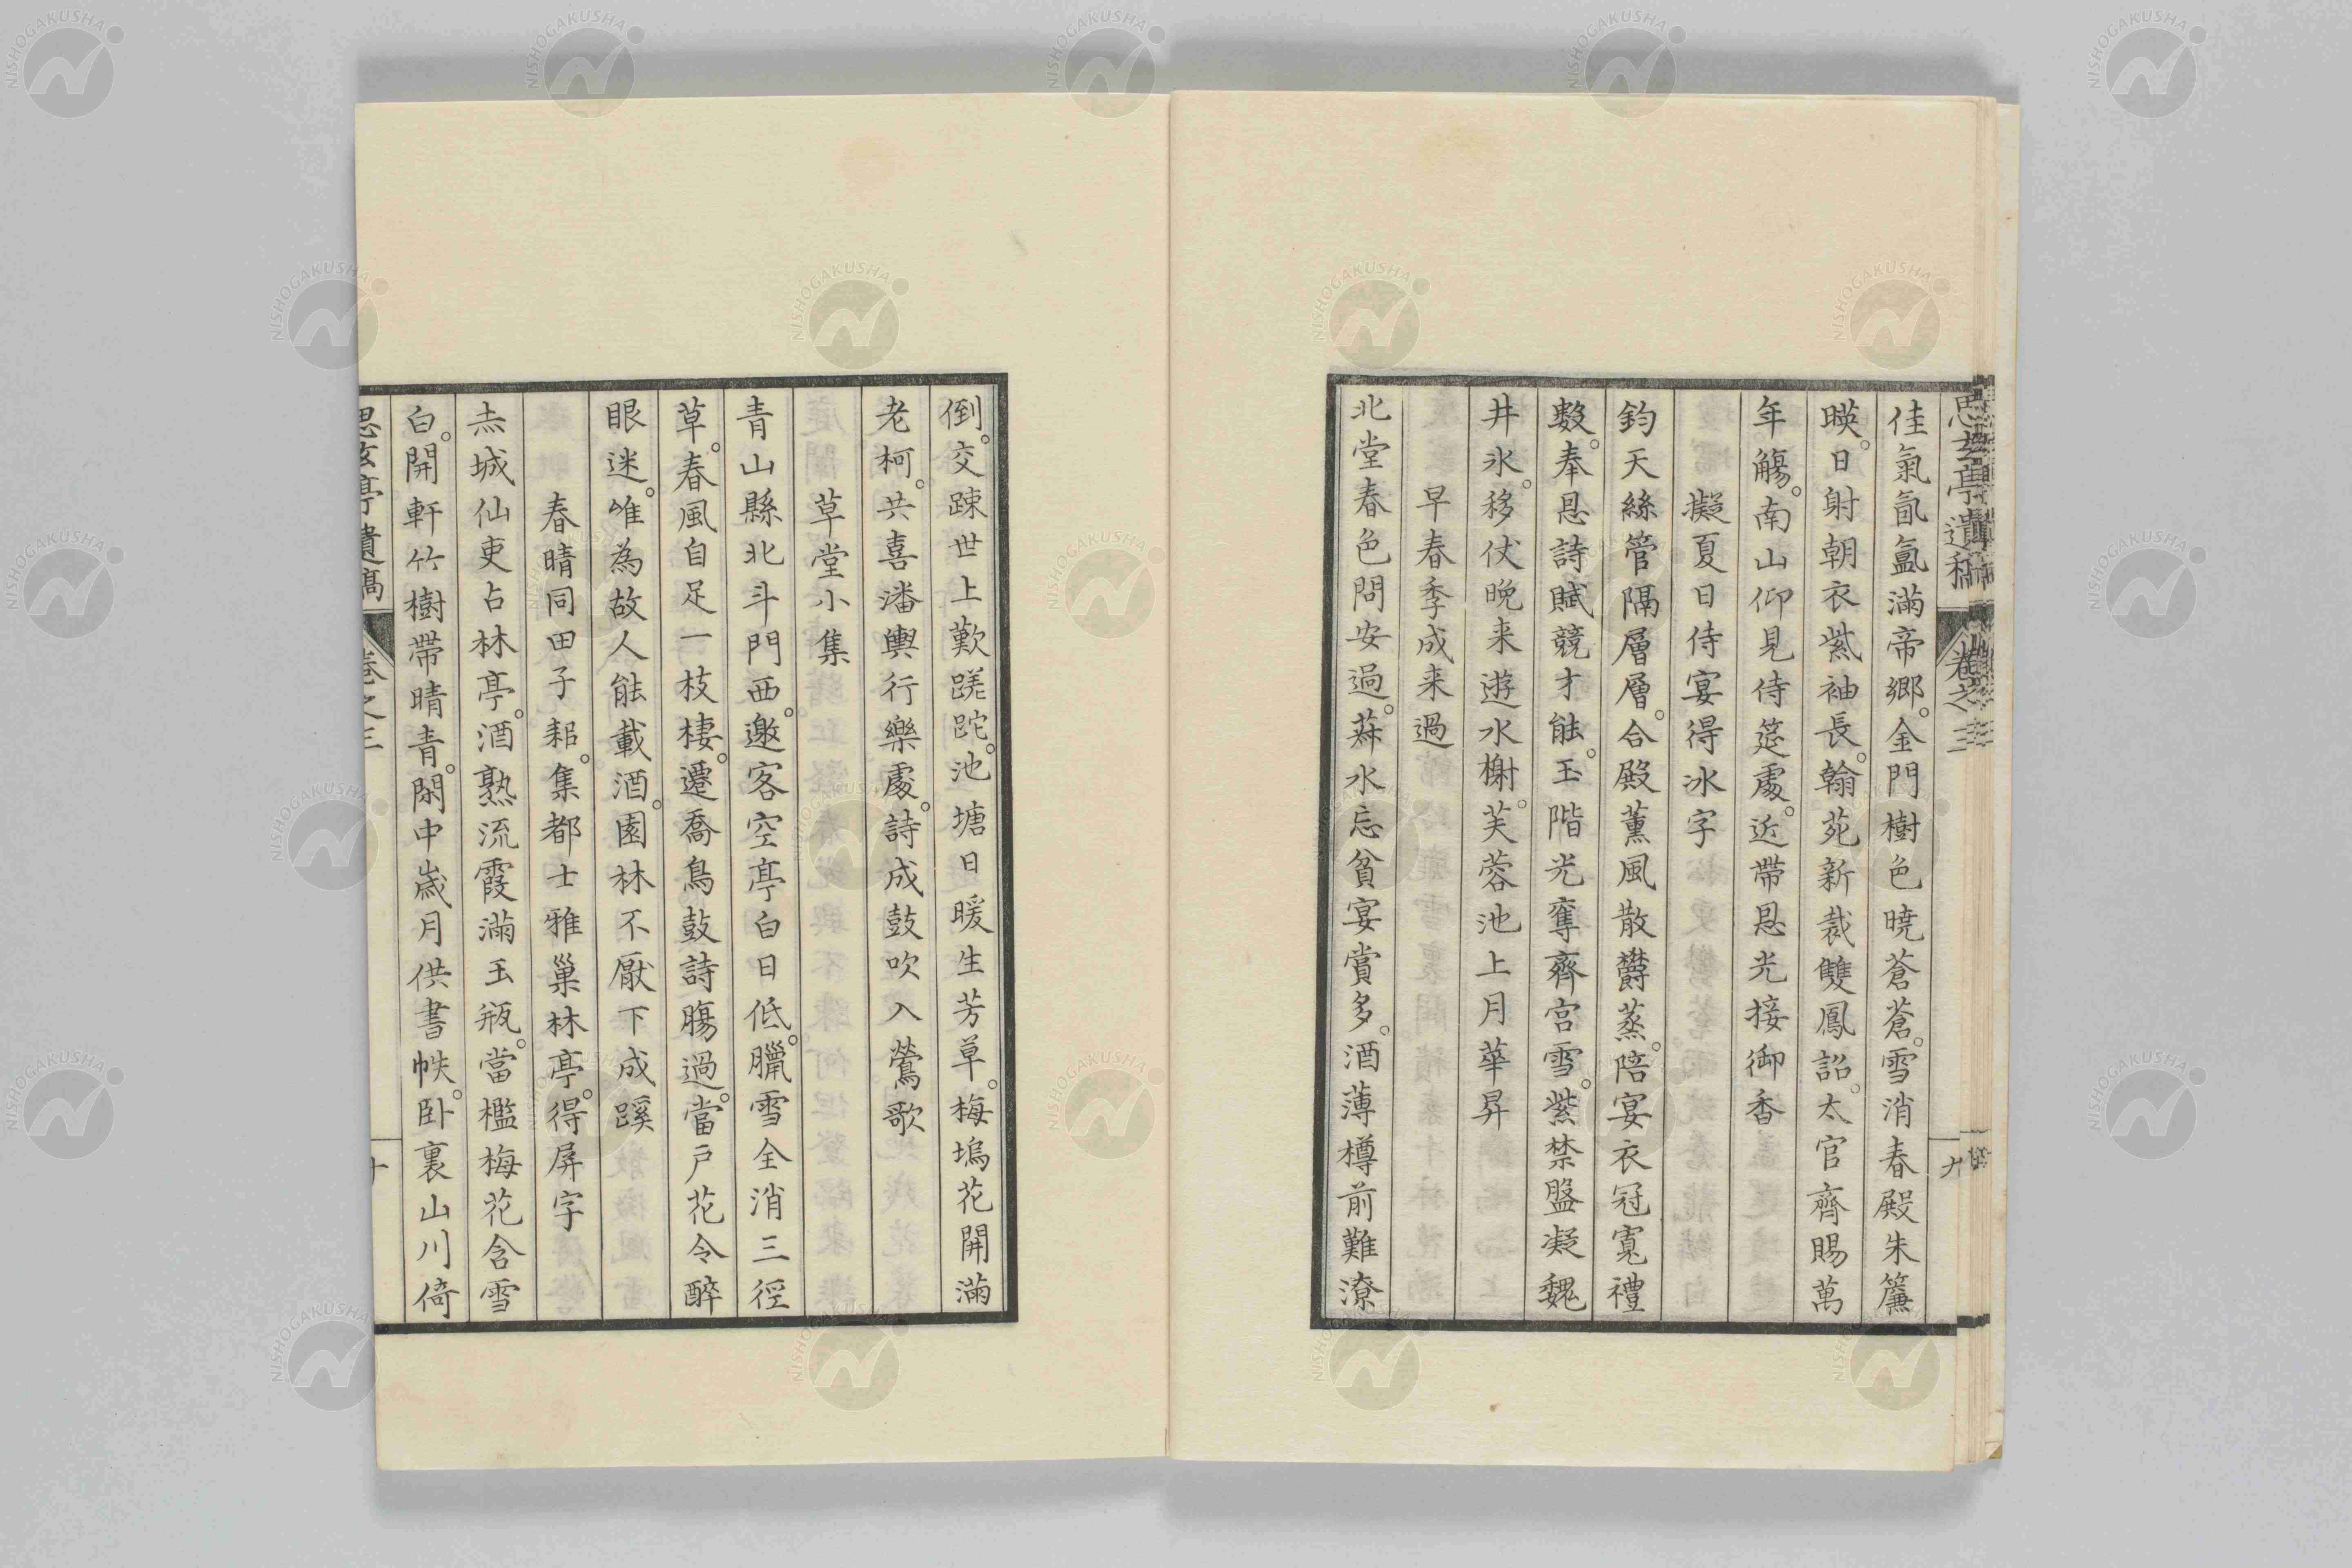 思玄亭遺稿 卷之三 九
佳氣氤氳滿帝鄉。金門樹色曉蒼蒼。雪消春殿朱簾
暎。日射朝衣紫袖長。翰苑新裁雙鳳詔。太官齊賜萬
年觴。南山仰見侍筵處。近帶恩光接御香
擬夏日侍宴得冰字
鈞天絲管隔層層。合殿薰風散欝蒸。陪宴衣冠寬禮
數。奉恩詩賦競才能。玉階光奪齊宮雪。紫禁盤凝魏
井氷。移仗晚来遊水榭。芙蓉池上月華昇
早春季成来過
北堂春色問安過。菽水忘貧宴賞多。酒薄樽前難潦
倒。交踈世上歎蹉跎。池塘日暖生芳草。梅塢花開滿
老柯。共喜潘輿行樂處。詩成鼓吹入鶯歌
草堂小集
青山縣北斗門西。邀客空亭白日低。臘雪全消三徑
草。春風自足一枝棲。遷喬鳥鼓詩腸過。當戶花令醉
眼迷。唯為故人能載酒。園林不厭下成蹊
春晴同田子耜。集都士雅巢林亭。得屏字
赤城仙吏占林亭。酒熟流霞滿玉瓶。當檻梅花含雪
白。開軒竹樹帶晴青。閑中歲月供書帙。臥裏山川倚
思玄亭遺稿 卷之三 十